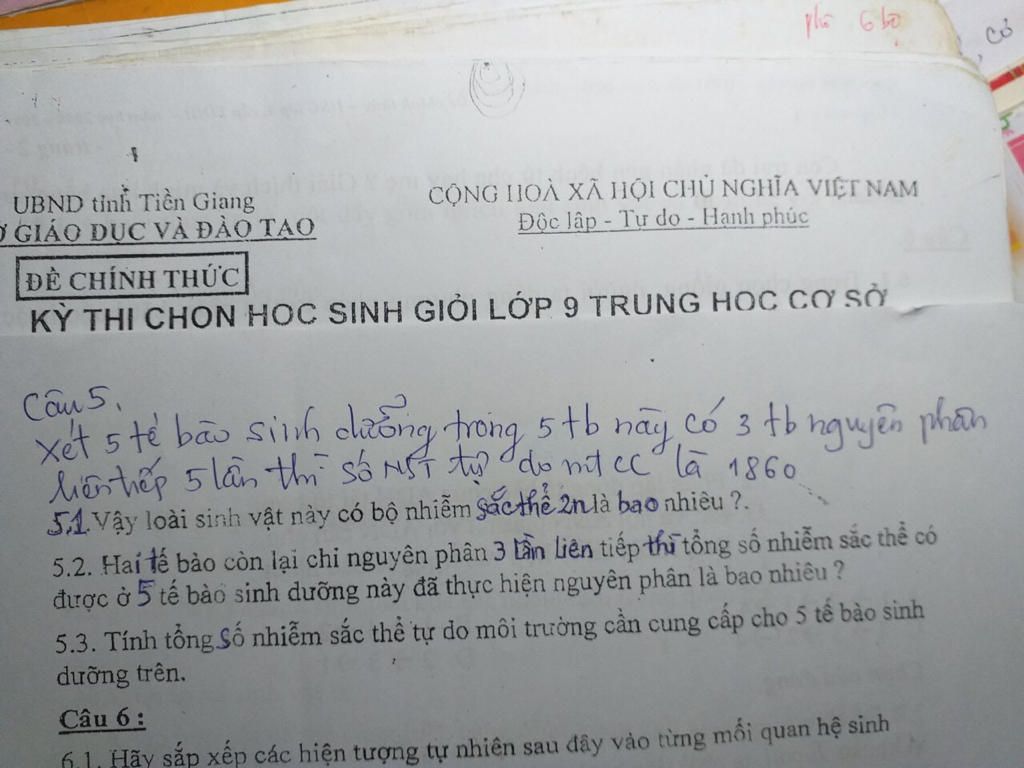 phô 6 bộ
, có
UBND tỉnh Tiền Giang
CỘNG HOÀ XÃ HỘI CHỦ NGHĨA VIỆT NAM
GIÁO DỤC VÀ ĐÀO TẠO
Độc lập - Tự do - Hạnh phúc
ĐỀ CHÍNH THỨC
KỲ THI CHỌN HỌC SINH GIỎI LỚP 9 TRUNG HỌC CƠ SỞ
Câu 5.
Xét 5 tế bào sinh dưỡng trong 5 tb này có 3 tb nguyên phân
liên tiếp 5 lần thì số NST tự do mt CC là 1860
5.1 Vậy loài sinh vật này có bộ nhiễm sắc thể 2n là bao nhiêu ?.
5.2. Hai tế bào còn lại chỉ nguyên phân 3 lần liên tiếp thì tổng số nhiễm sắc thể có
được ở 5 tế bào sinh dưỡng này đã thực hiện nguyên phân là bao nhiêu ?
5.3. Tính tổng số nhiễm sắc thể tự do môi trường cần cung cấp cho 5 tế bào sinh
dưỡng trên.
Câu 6 :
6.1. Hãy sắp xếp các hiện tượng tự nhiên sau đây vào từng mối quan hệ sinh